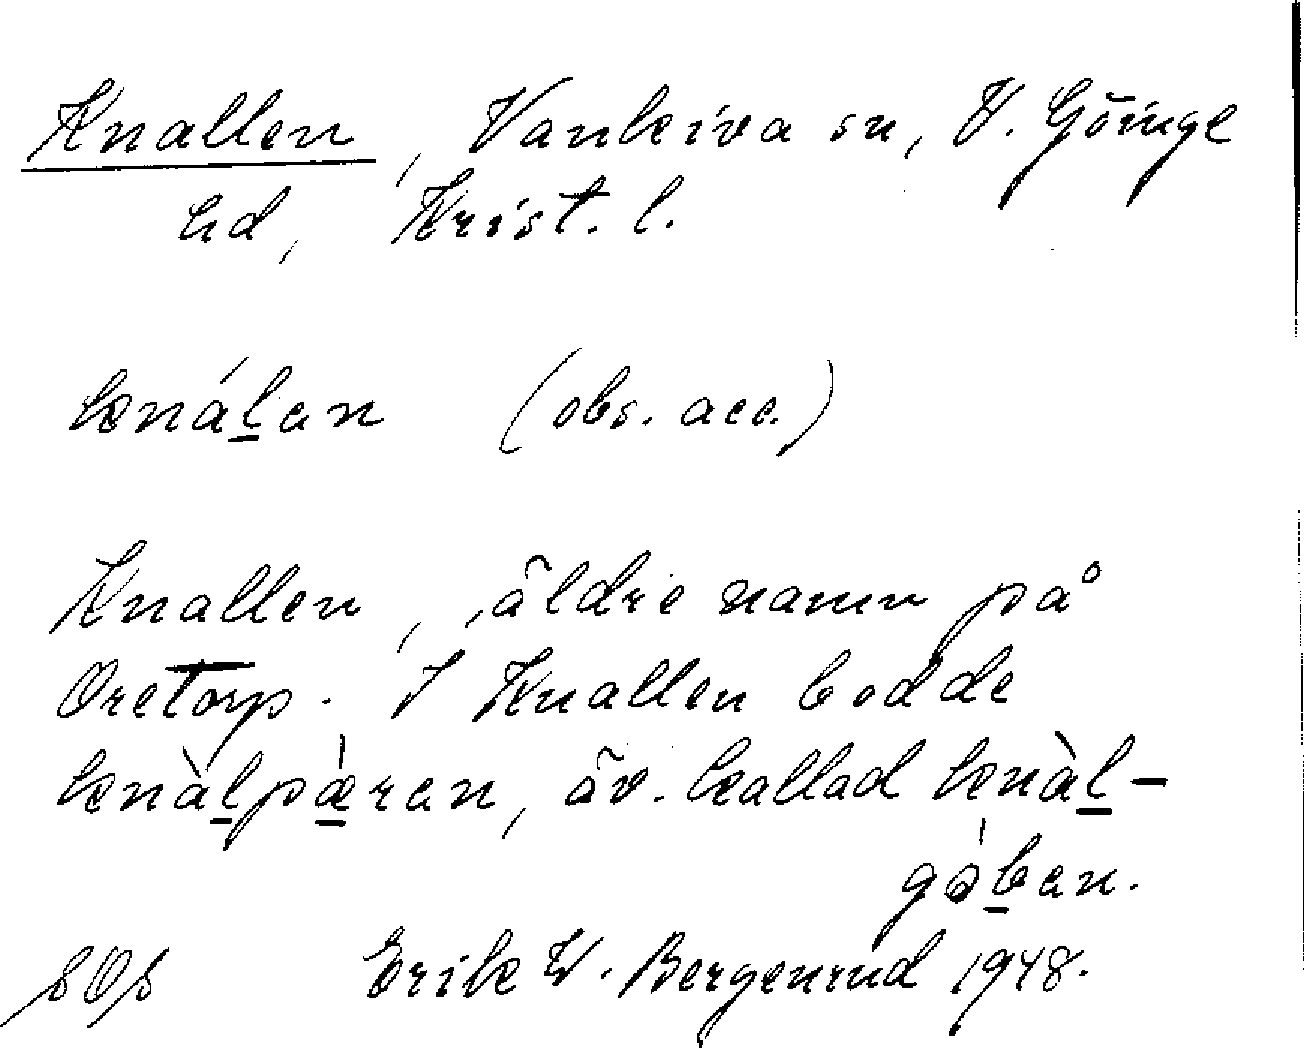 Knallen, Vankiva sn, V. Göinge
hd, Krist. l.
knál̲an (obs. acc.)
Knallen, äldre namn på
Oretorp. I Knallen bodde
knàl̲pæ̲̀ran, äv. kallad knàl̲-
gòb̲an.
SOS Erik W. Bergenrud 1948.